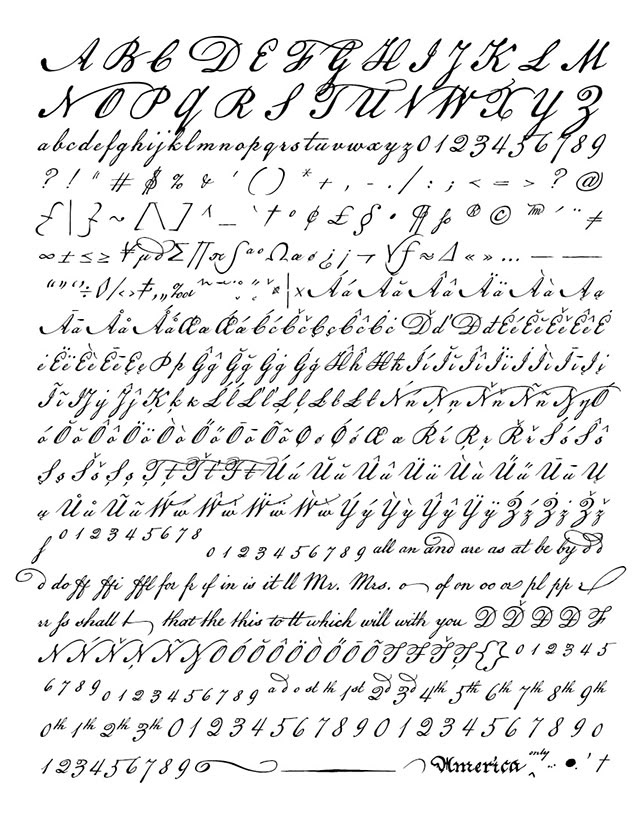 A B C D E F G H I J K L M
N O P Q R S T U V W X Y Z
abcdefghijklmnopqrstuvwxyz0123456789
? ! " # $ % & ' ( ) * + , - . / : ; < = > ? @
{ | } ~ [ \ ] ^ _ ` † ° ¢ £ § • ¶ ß ® © ™ ´ ¨ ≠
∞ ± ≤ ≥ ¥ µ ∂ ∑ ∏ π ∫ ª º Ω æ ø ¿ ¡ ¬ √ ƒ ≈ ∆ « » … – —
“ ” ‘ ’ ÷ ◊ / ‹ › ‡ · ‚ „ ‰
× Á á Ă ă Â â Ä ä À à Ą
Ā ā Å å Ã ã Æ æ Ć ć Č č Ç ç Ĉ ĉ Ċ ċ Ď ď Đ đ É é Ĕ ĕ Ě ě Ê ê Ė
ė Ë ë È è Ē ē Ę ę Þ þ Ĝ ĝ Ğ ğ Ġ ġ Ģ ģ Ĥ ĥ Ħ ħ Í í Ĭ ĭ Î î Ï ï İ Ì ì Ī ī Į į
Ĩ ĩ IJ ij Ĵ ĵ Ķ ķ ĸ Ĺ ĺ Ľ ľ Ļ ļ Ŀ ŀ Ł ł Ń ń Ņ ņ Ň ň Ñ ñ Ŋ ŋ Ó
ó Ŏ ŏ Ô ô Ö ö Ò ò Ő ő Ō ō Õ õ Ø ø Œ œ Ŕ ŕ Ŗ ŗ Ř ř Ś ś Ŝ ŝ
Ş ş Š š Ș ș Ŧ ŧ Ť ť Ţ ţ Ú ú Ŭ ŭ Û û Ü ü Ù ù Ű ű Ū ū Ų
ų Ů ů Ũ ũ Ẃ ẃ Ŵ ŵ Ẅ ẅ Ẁ ẁ Ý ý Ỳ ỳ Ŷ ŷ Ÿ ÿ Ź ź Ż ż Ž ž
ſ 0 1 2 3 4 5 6 7 8
0 1 2 3 4 5 6 7 8 9 all an and are as at be by d d
d do ff ffi ffl for fr if in is it ll Mr. Mrs. o of on oo or pl pp r
rr ſs shall t that the this to tt which will with you D Ď Đ D F
N Ń Ň Ņ Ñ Ŋ O Ó Ŏ Ô Ö Ò Ő Ō Õ { } 0 1 2 3 4 5
6 7 8 9 0 1 2 3 4 5 6 7 8 9 a d o st th 1st 2d 3d 4th 5th 6th 7th 8th 9th
0th 1th 2th 3th 0 1 2 3 4 5 6 7 8 9 0 1 2 3 4 5 6 7 8 9 0
1 2 3 4 5 6 7 8 9 America only